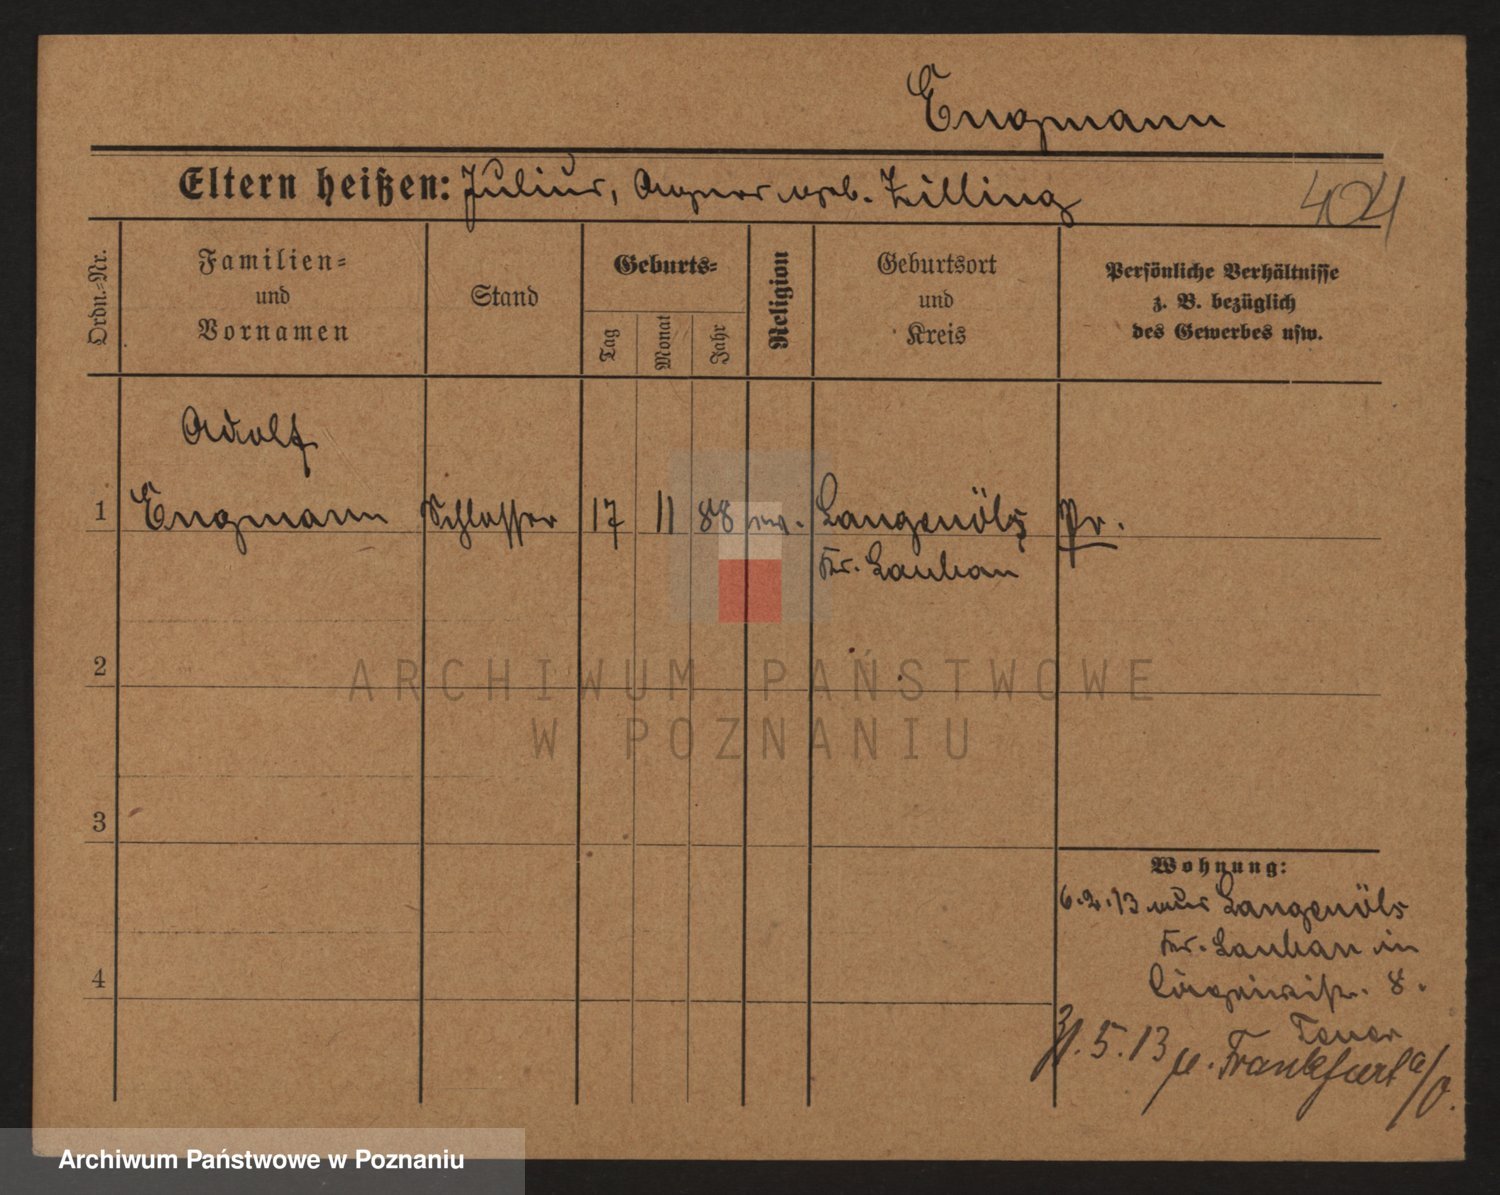 Engmann
Eltern heißen: Julius, Agnes geb. Zilling
404
Ordn.-Nr.
Familien-
und
Vornamen
Stand
Geburts-
Tag
Monat
Jahr
Religion
Geburtsort
und
Kreis
Persönliche Verhältnisse
z. B. bezüglich
des Gewerbes usw.
Adolf
1 Engmann Schlosser 17 11 88 ev. Langenöls Pr.
Kr. Lauban
2
ARCHIWUM PAŃSTWOWE
W POZNANIU
3
Wohnung:
6.2.13 aus Langenöls
Kr. Lauban in
4
8.
31.5.13 n. Frankfurt a/O.
Archiwum Państwowe w Poznaniu